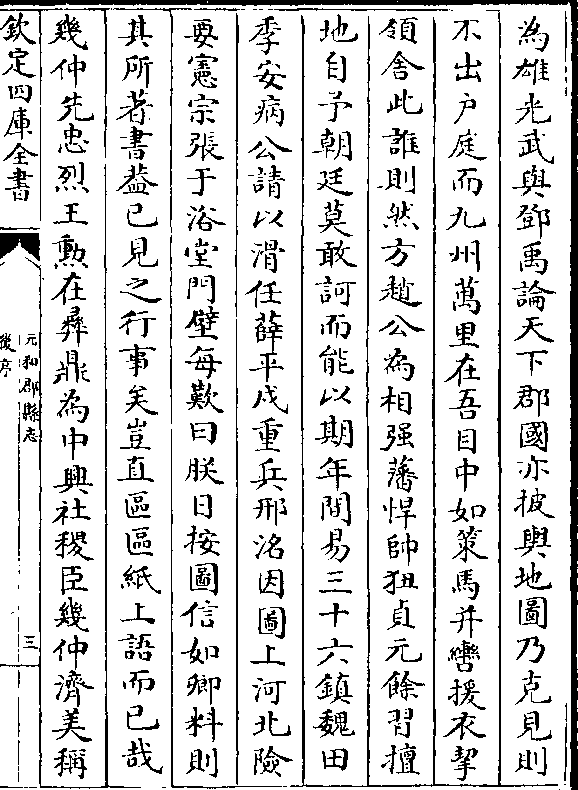 為雄光武與鄧禹論天下郡國亦披輿地圖乃克見則
不出户庭而九州萬里在吾目中如策馬并轡援衣挈
領舍此誰則然方趙公為相强藩悍帥狃貞元餘習擅
地自予朝廷莫敢訶而能以期年間易三十六鎮魏田
季安病公請以滑任薛平戍重兵邢洺因圖上河北險
要憲宗張于浴堂門壁每歎曰朕日按圖信如卿料則
其所著書葢已見之行事矣豈直區區紙上語而已哉
幾仲先忠烈王勲在彞鼎為中興社稷臣幾仲濟美稱
欽定四庫全書
元和郡縣志
後序
三